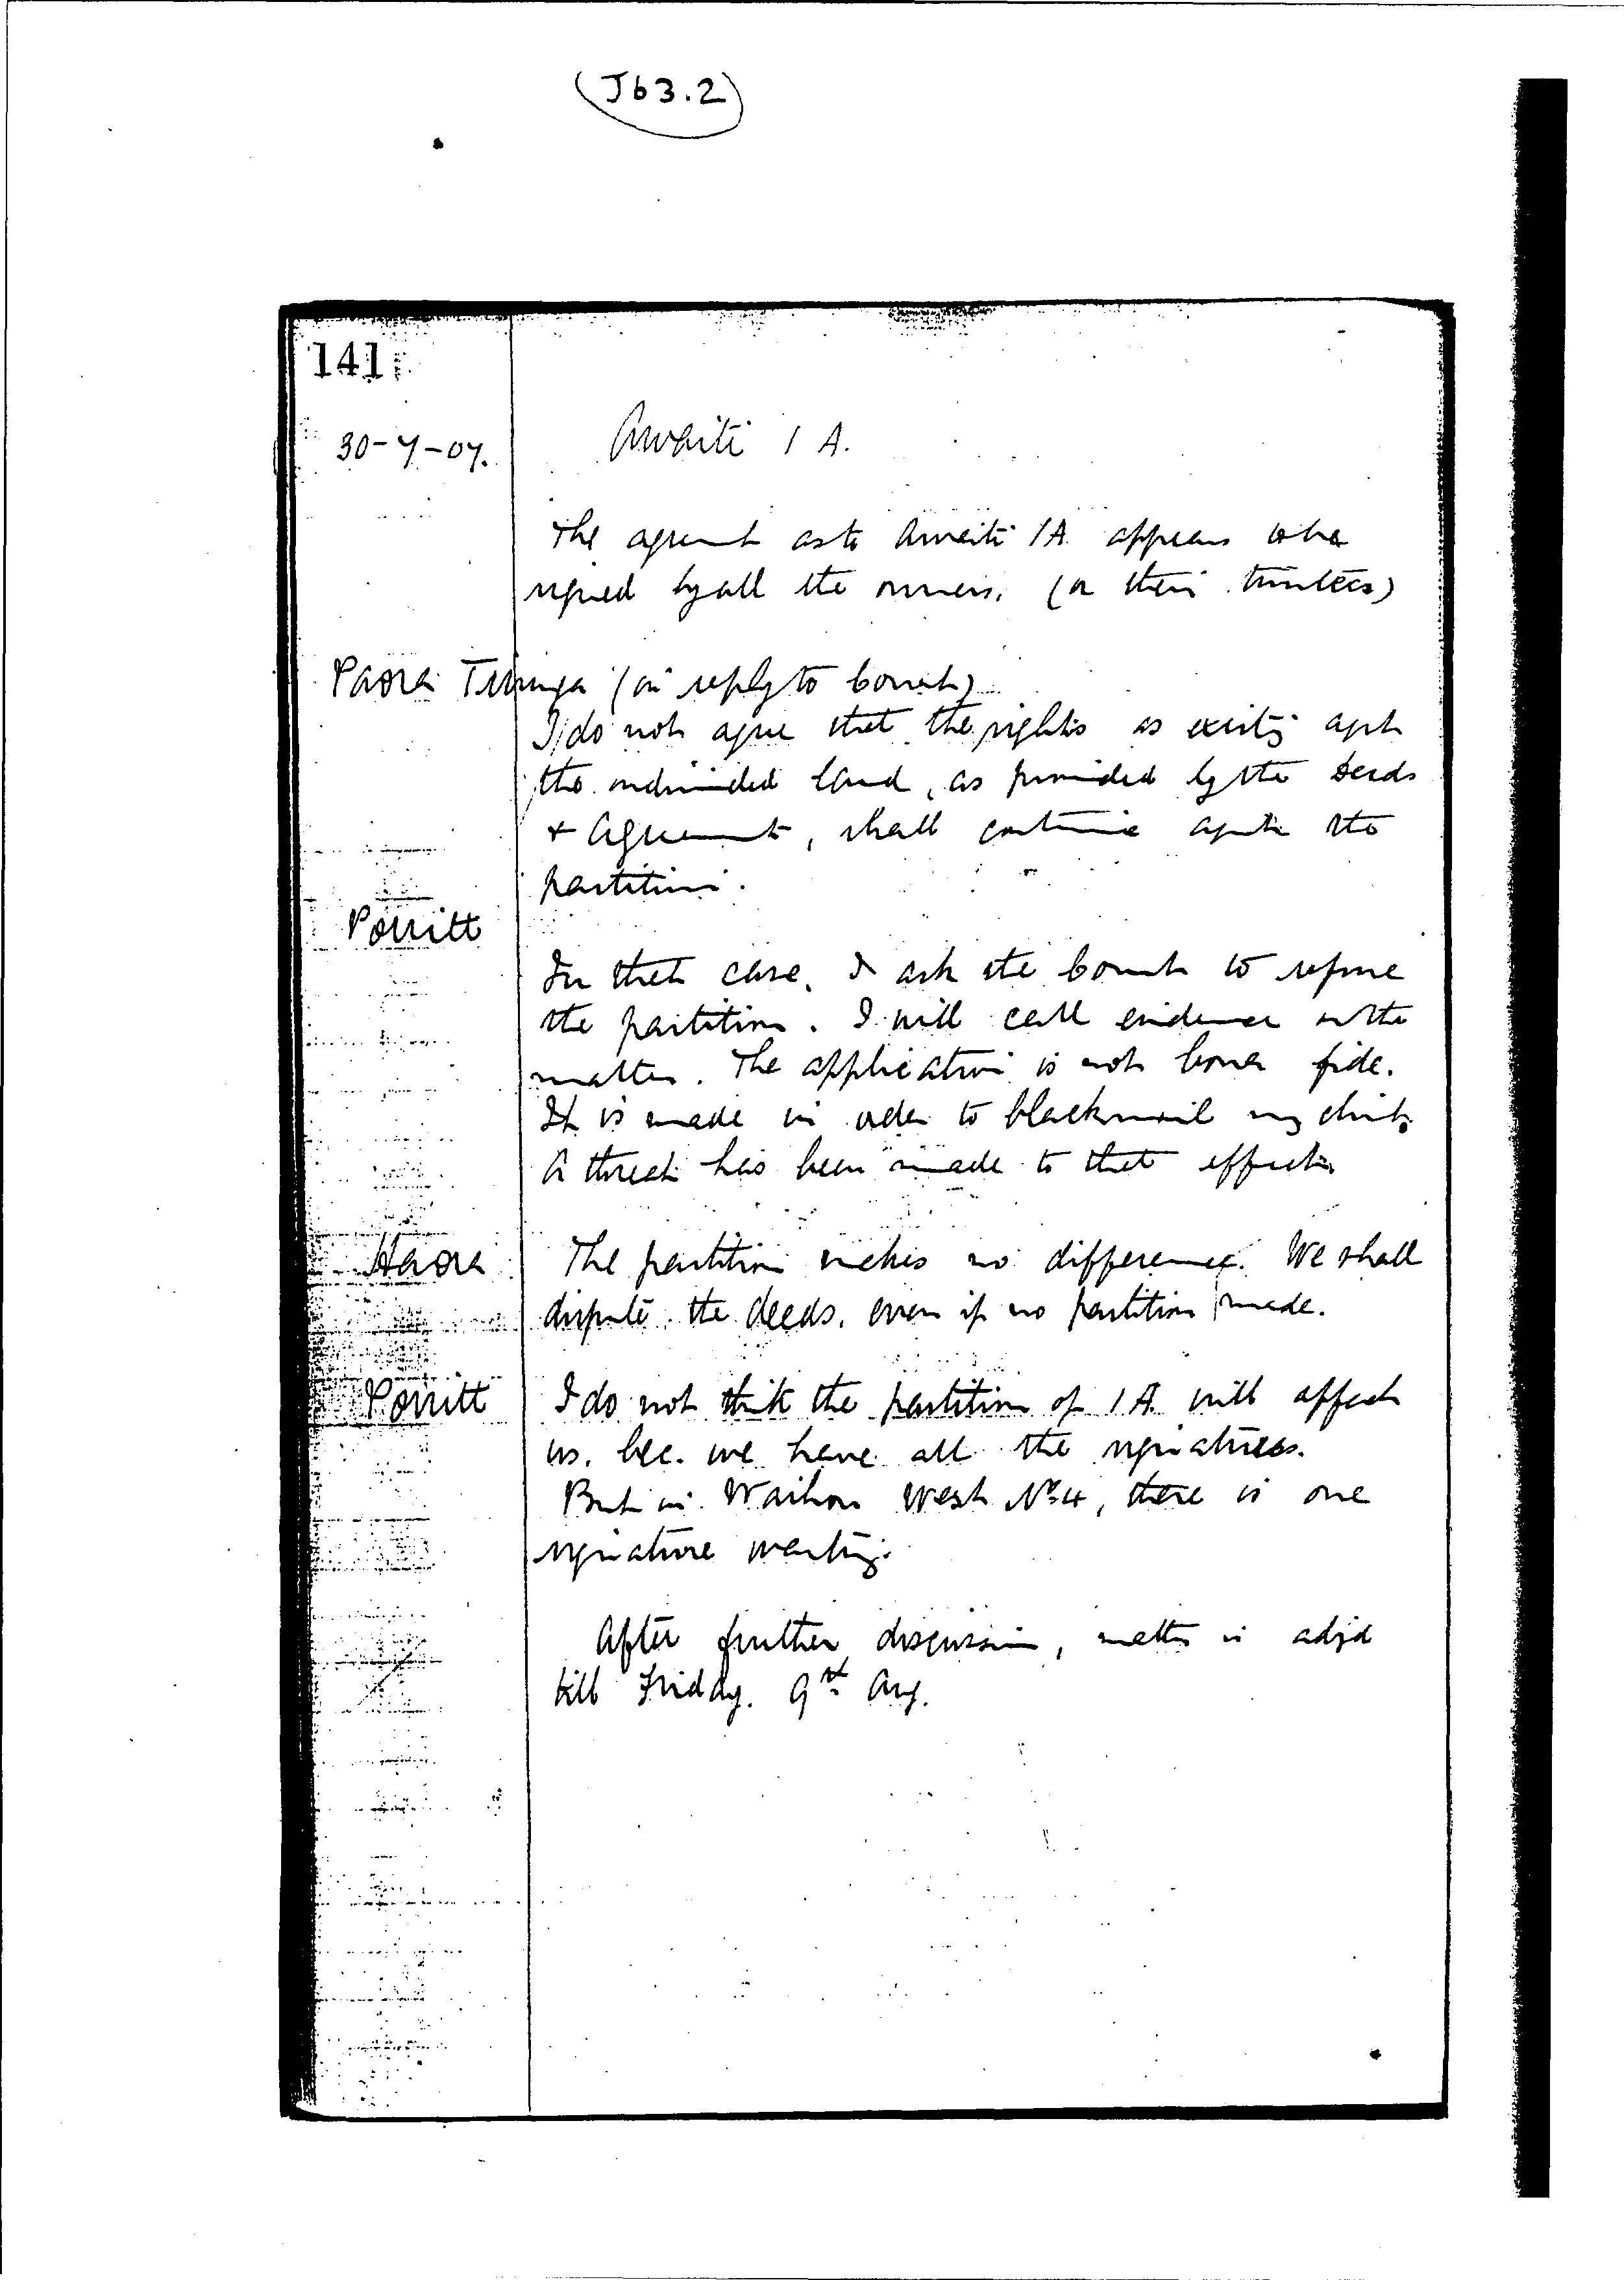 (J63.2)
141
30-7-07. Awaiti 1 A.
The agreemt as to Awaiti 1A appears to be
signed by all the owners. (or their trustees)
Paora (in reply to Court)
I do not agree that the rights as existg agst
the undivided land, as provided by the deeds
+ agreements, shall continue after the
partition.
Porritt
In that case, I ask the Court to refuse
the partition. I will call evidence on the
matter. The application is not bona fide.
It is made in order to blackmail my clients
A threat has been made to that effect.
Haora The partition makes no difference. We shall
dispute the deeds, even if no partition made.
Porritt I do not think the partition of 1 A will affect
us, bec. we have all the signatures.
But in Waihou West No 4, there is one
signature wanting.
After further discussion, matter is adjd
till Friday. 9th Aug.